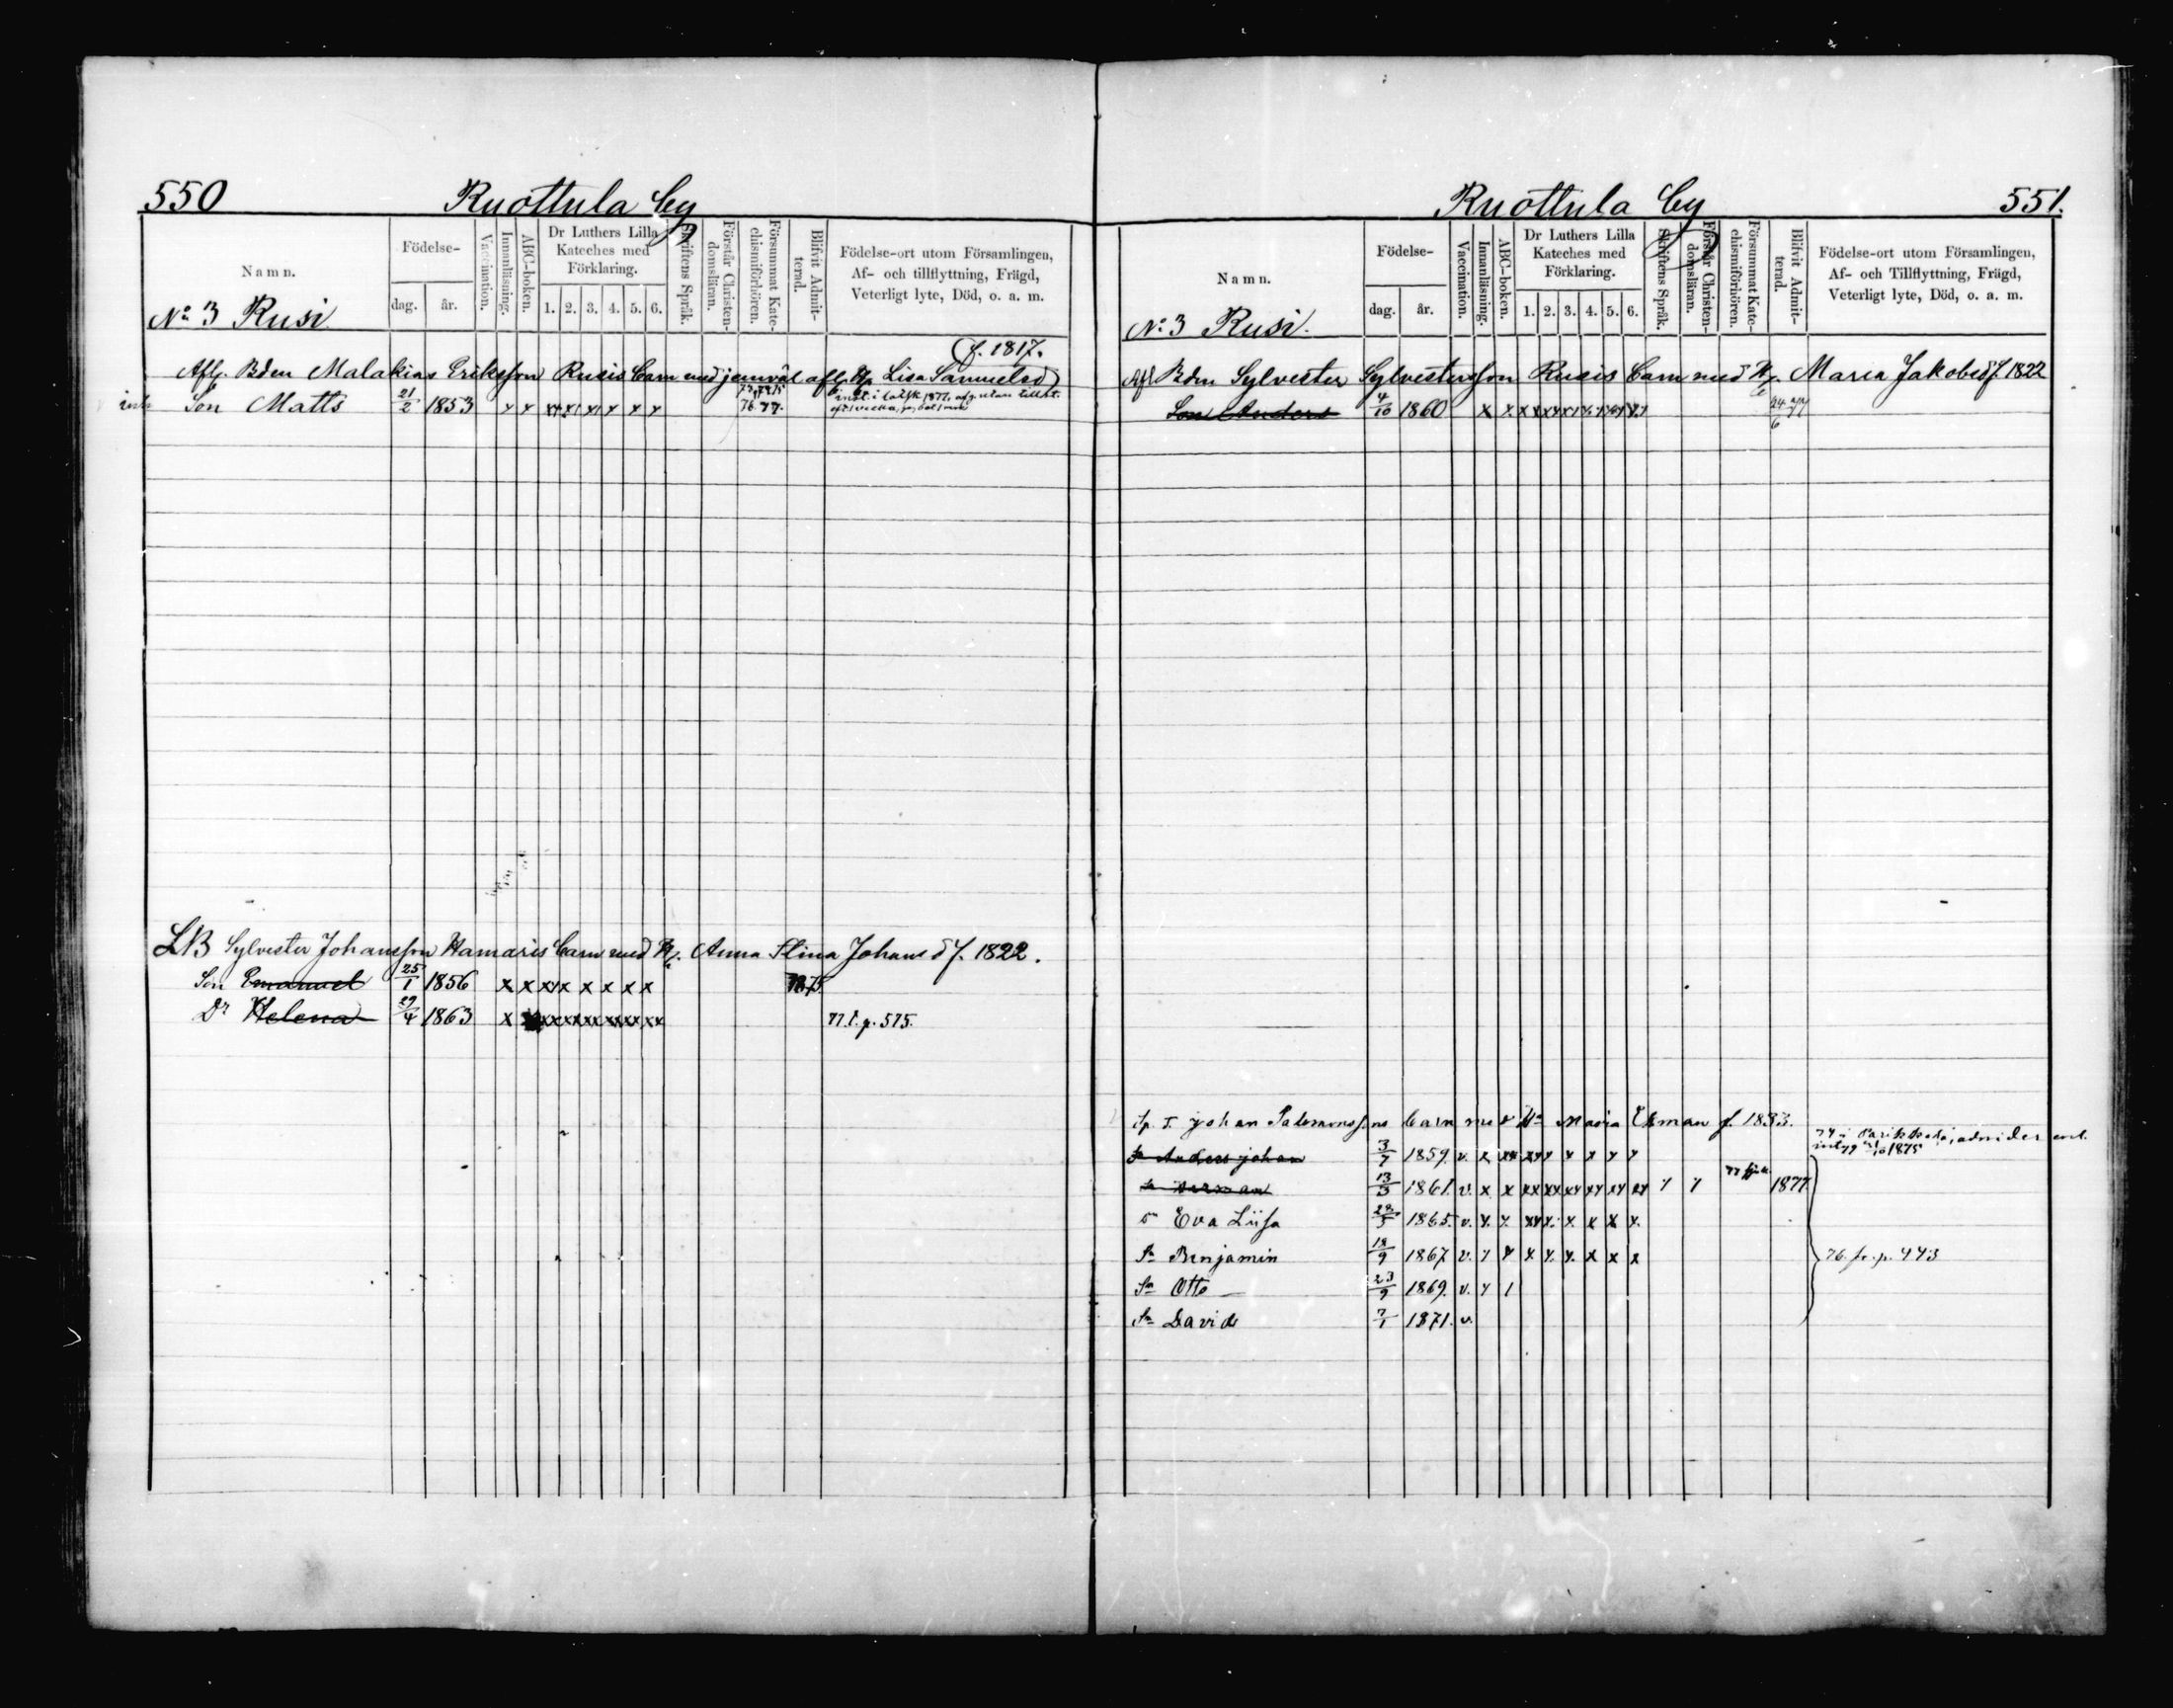 550 Ruottula by
Namn. Födelse- dag. år. Vaccination. Innanläsning. ABC-boken. Dr Luthers Lilla Kateches med Förklaring. 1. 2. 3. 4. 5. 6. Skriftens Språk. Förstår Christendomsläran. Försummat Katechismiförhören. Blifvit Admitterad. Födelse-ort utom Församlingen, Af- och tillflyttning, Frägd, Veterligt lyte, Död, o. a. m.
No 3 Rusi
f. 1817.
Afl. Bden Malakias Eriksson Rusis barn med jemväl afl. H. Lisa Samuelsd
Son Matts 21/2 1853 x x xx x x x x x 76. 77.
LB Sylvester Johansson Hamaris barn med H. Anna Stina Johansd f. 1822.
Son Emanuel 25/1 1856 x x xx x x x x x 1875
Dr Helena 29/4 1863 x xx xx xx xx xx xx 77. t. p. 515.
Ruottula by 551.
Namn. Födelse- dag. år. Vaccination. Innanläsning. ABC-boken. Dr Luthers Lilla Kateches med Förklaring. 1. 2. 3. 4. 5. 6. Skriftens Språk. Förstår Christendomsläran. Försummat Katechismiförhören. Blifvit Admitterad. Födelse-ort utom Församlingen, Af- och Tillflyttning, Frägd, Veterligt lyte, Död, o. a. m.
No 3 Rusi.
Afl Bdn Sylvester Sylvestersson Rusis barn med H. Maria Jakobsd f. 1822
Son Anders 4/10 1860 x x x x xx x 24/6 77
Johan Salomonssons barn med Ha Maria Ekman f. 1833.
Sn Anders Johan 3/7 1859. v. x xx xx x x x x
Sn Herman 1861. v. x x xx xx xx xx xx xx 1877
Dr Eva Liisa 1865. v. x. x. xx x. x. x x x.
Sn Benjamin 18/9 1867 v. x x x x. x. x x x 76. fr. p. 443
Sn Otto 23/9 1869. v. x 1
Sn David 7/1 1871. v.